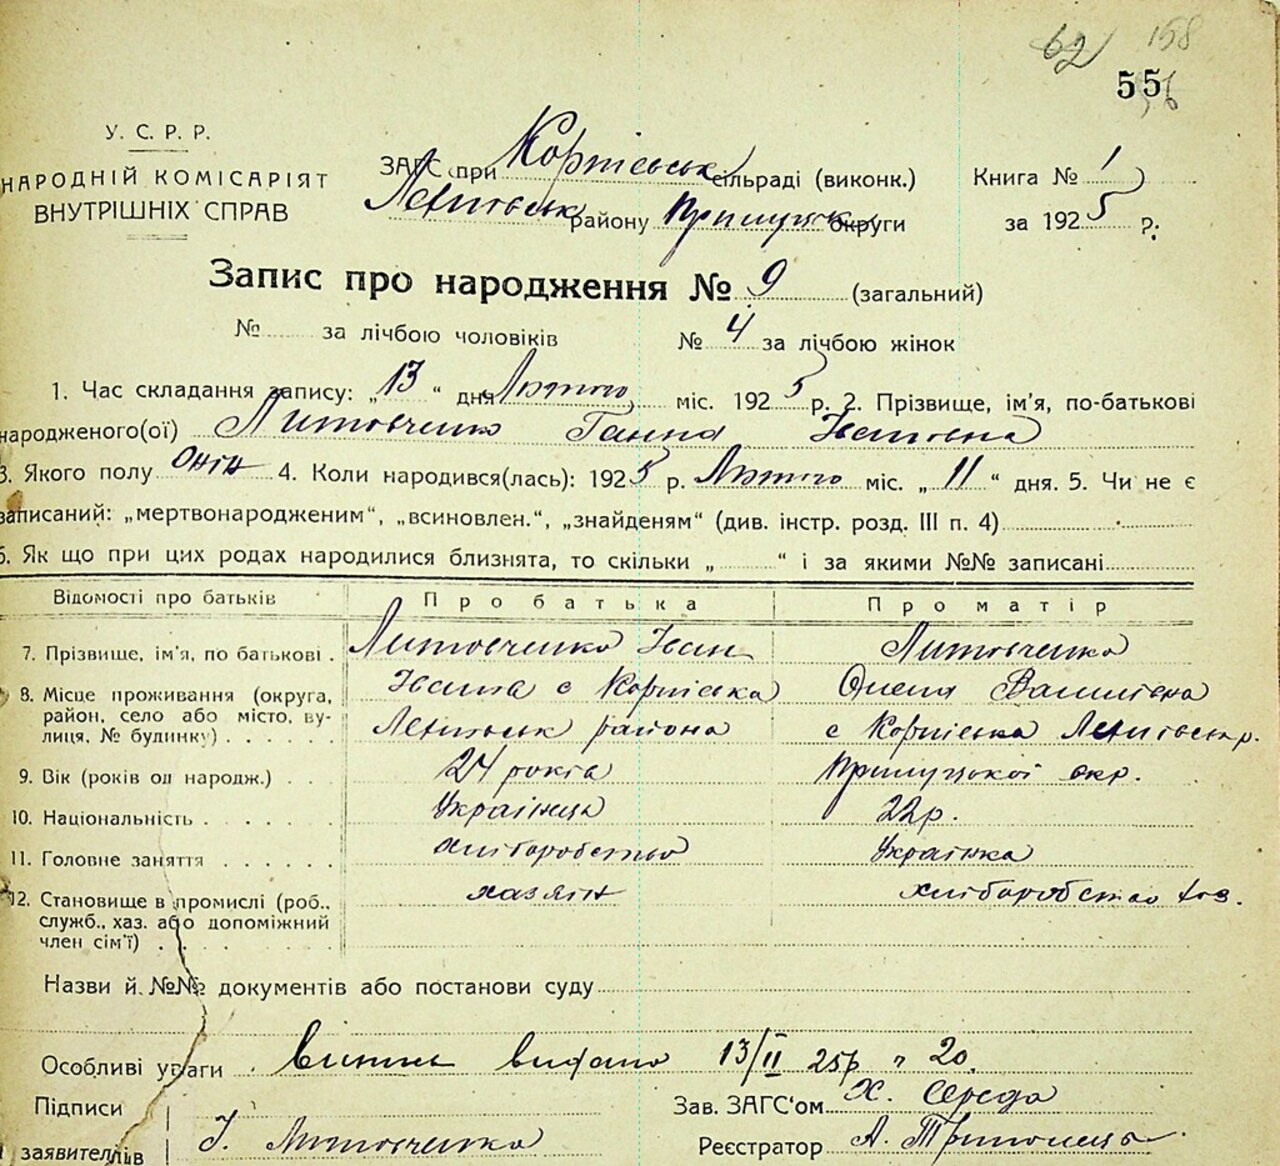 62 158
55
У. С. Р. Р.
НАРОДНІЙ КОМІСАРІЯТ
ВНУТРІШНІХ СПРАВ
ЗАГС при сільраді (виконк.)
району Прилуцьк округи
Книга № 1
за 1925 р.
Запис про народження № 9 (загальний)
№ за лічбою чоловіків № 4 за лічбою жінок
1. Час складання запису: „13“ дня Лютого міс. 1925 р. 2. Прізвище, ім'я, по-батькові
народженого(ої) Литовченко Ганна Івановна
3. Якого полу 4. Коли народився(лась): 1925 р. Лютого міс. „11“ дня. 5. Чи не є
записаний: „мертвонародженим“, „всиновлен.“, „знайденям“ (див. інстр. розд. III п. 4)
6. Як що при цих родах народилися близнята, то скільки „ “ і за якими №№ записані
Відомості про батьків Про батька Про матір
7. Прізвище, ім'я, по батькові . Литовченко Іван Литовченко
8. Місце проживання (округа, район, село або місто, вулиця, № будинку) Івана с Василівна
района с
9. Вік (років од народж.) 24 років Прилуцької окр.
10. Національність Українець 22 р.
11. Головне заняття хліборобство Українка
12. Становище в промислі (роб., служб., хаз. або допоміжний член сім'ї) хазяїн хліборобство
Назви й №№ документів або постанови суду
Особливі уваги видано 13/II 25р 20.
Підписи Зав. ЗАГС'ом Х. Середа
заявителів І. Литовченко Реєстратор А.